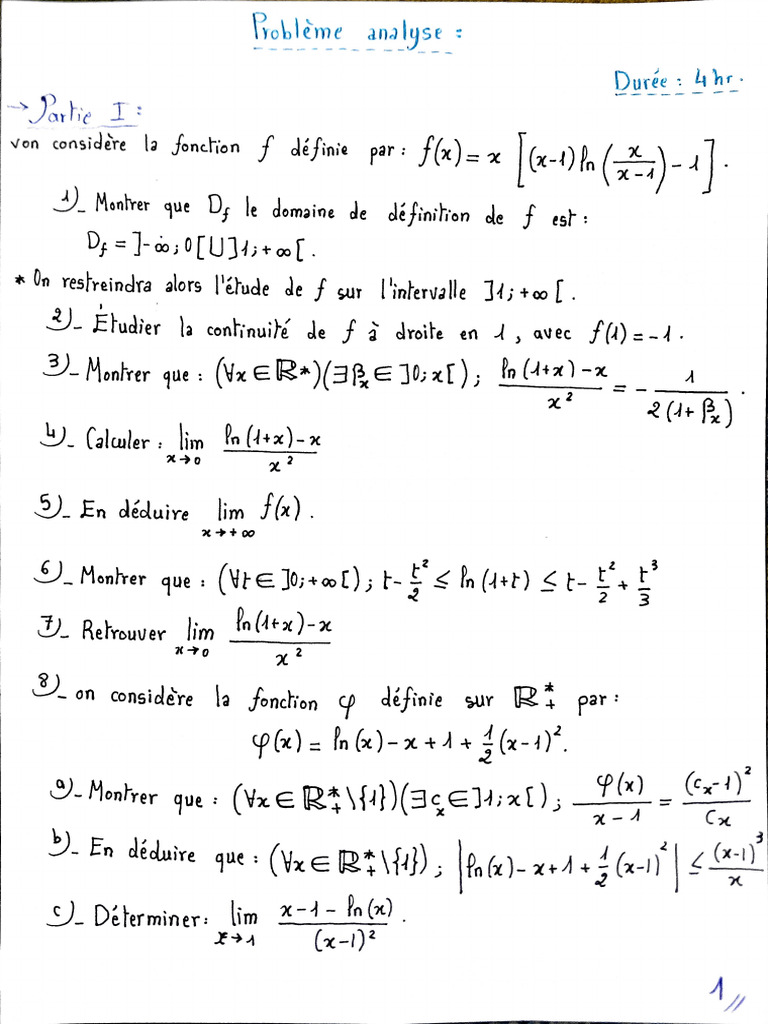 Problème analyse :
Durée : 4 hr.
→ Partie I :
von considère la fonction f définie par : f(x) = x [(x-1) ln(x/(x-1)) - 1].
1)_ Montrer que D_f le domaine de définition de f est :
D_f = ]-∞; 0[ ⋃ ]1; +∞[.
* On restreindra alors l'étude de f sur l'intervalle ]1; +∞[.
2)_ Étudier la continuité de f à droite en 1, avec f(1) = -1.
3)_ Montrer que : (∀x ∈ ℝ*)(∃β_x ∈ ]0; x[) ; (ln(1+x) - x)/x² = - 1/(2(1+β_x)).
4)_ Calculer : lim_{x→0} (ln(1+x) - x)/x²
5)_ En déduire lim_{x→+∞} f(x).
6)_ Montrer que : (∀t ∈ ]0; +∞[) ; t - t²/2 ≤ ln(1+t) ≤ t - t²/2 + t³/3
7)_ Retrouver lim_{x→0} (ln(1+x) - x)/x²
8)_ on considère la fonction φ définie sur ℝ*₊ par :
φ(x) = ln(x) - x + 1 + 1/2 (x-1)².
a)_ Montrer que : (∀x ∈ ℝ*₊\{1})(∃c_x ∈ ]1; x[) ; φ(x)/(x-1) = (c_x-1)²/c_x
b)_ En déduire que : (∀x ∈ ℝ*₊\{1}) ; |ln(x) - x + 1 + 1/2 (x-1)²| ≤ (x-1)³/x
c)_ Déterminer : lim_{x→1} (x-1-ln(x))/(x-1)².
1 //